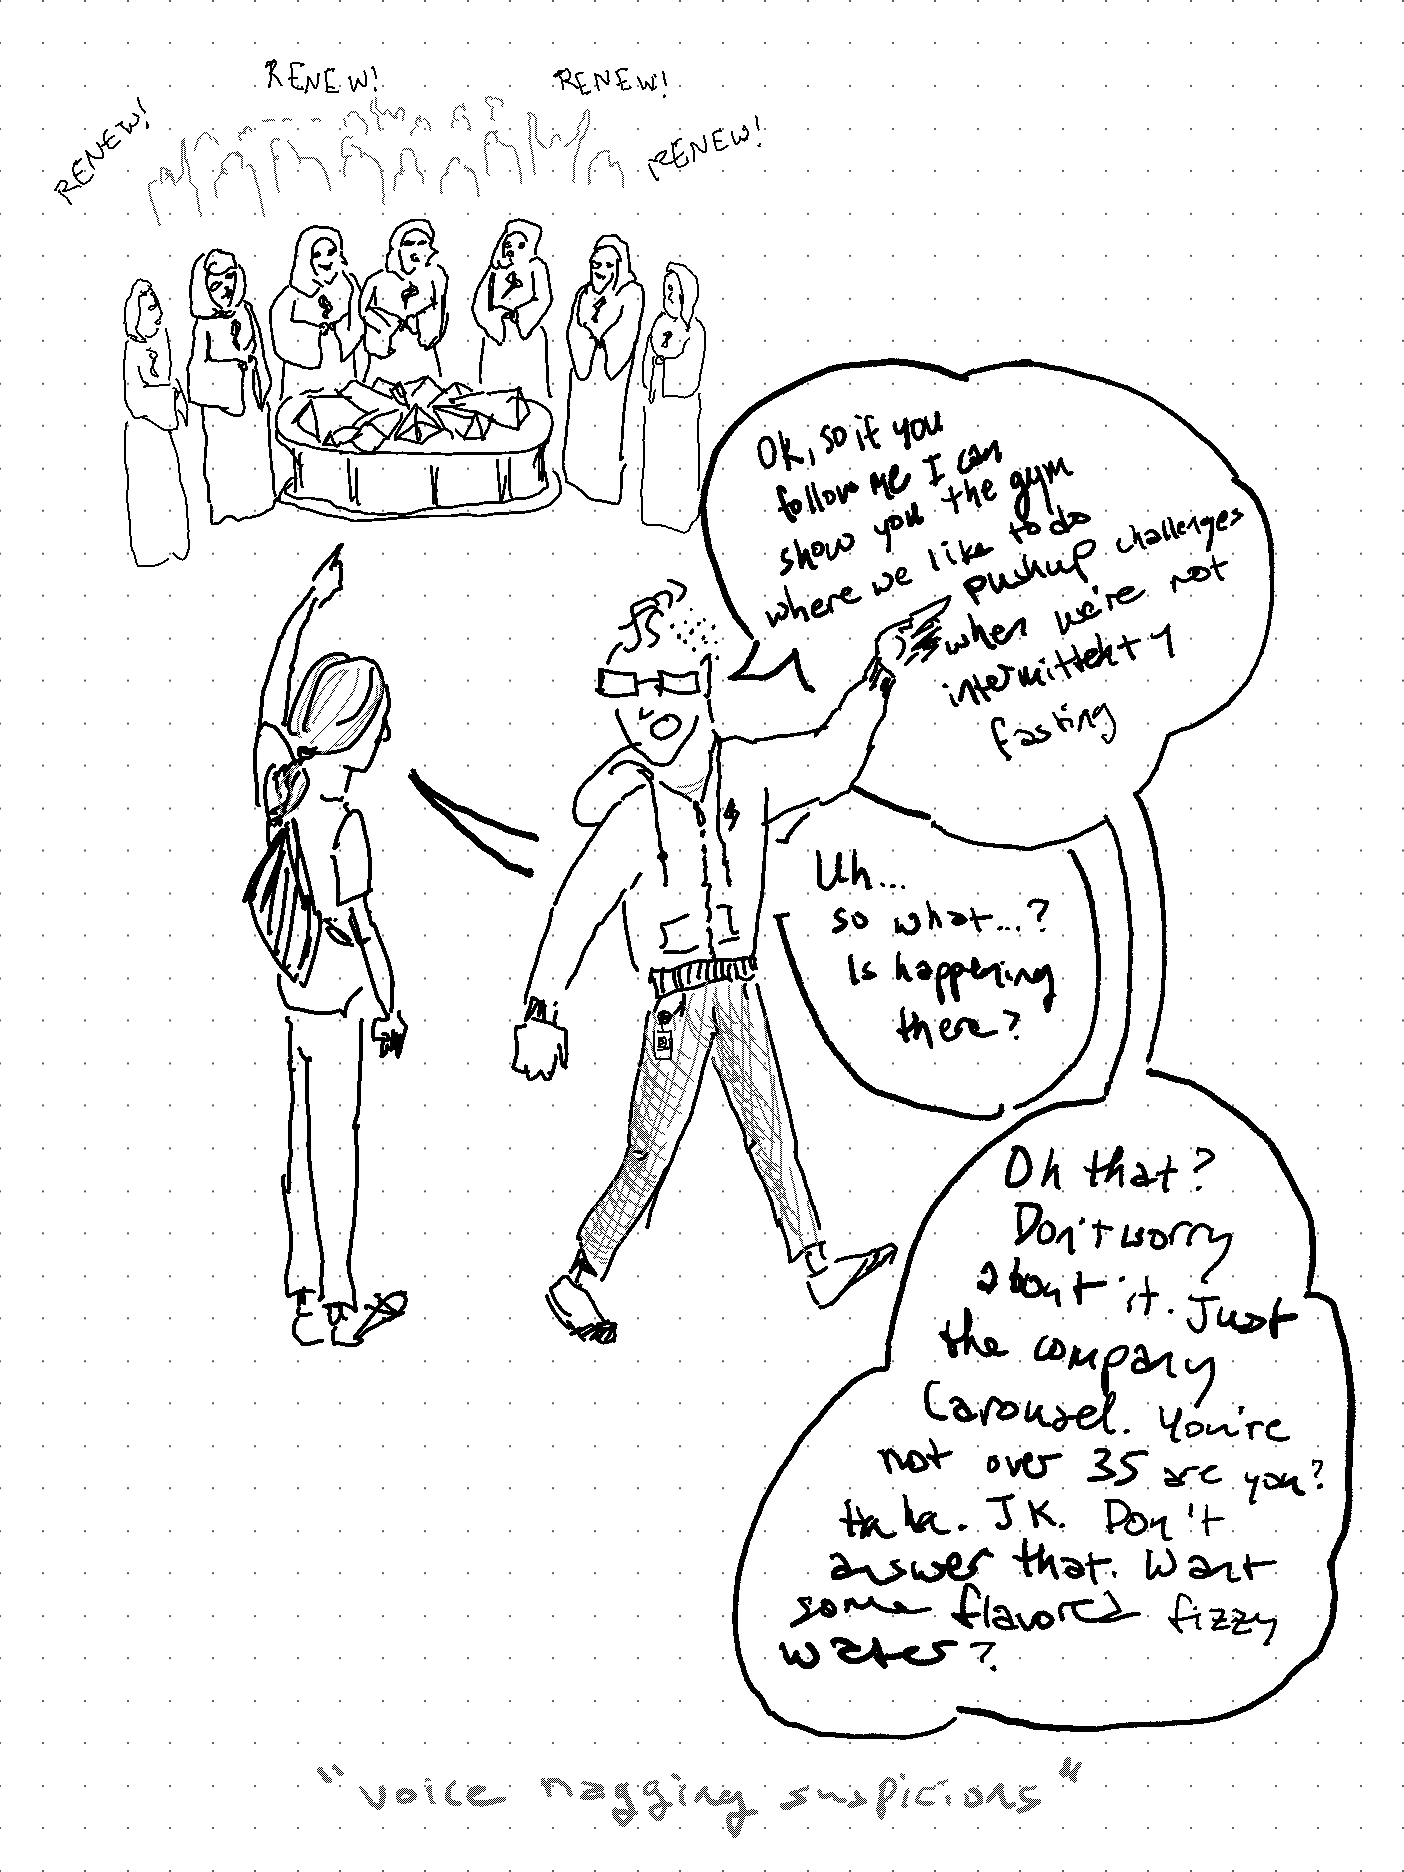 RENEW!
RENEW!
RENEW!
RENEW!
Ok, so if you
follow me I can
show you the gym
where we like to do
pushup challenges
when we're not
intermittently
fasting
Uh...
so what...?
Is happening
there?
Oh that?
Don't worry
about it. Just
the company
Carousel. You're
not over 35 are you?
Haha. JK. Don't
answer that. Want
some flavored fizzy
water?
"voice nagging suspicions"